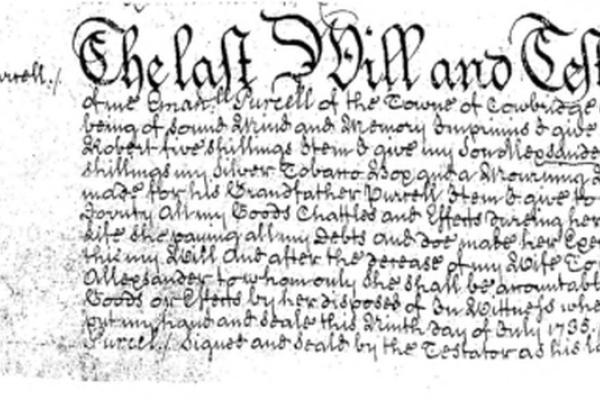 The last Will and Test
urcell./
of me Eman.ll Purcell of the Towne of Cowbridge
being of sound Mind and Memory Imprimis I give
Robert five shillings Item I give my Son Allexander
shillings my Silver Tobacco Box and a Mourning
made for his Grandfather Purcell Item I give to
all my Goods Chattles and Effects dureing her
life she paying all my Debts and doe make her Exe
this my Will And after the decease of my Wife
Allexander to whom only she shall be accountabl
Goods or Effects by her disposed of In Wittness whe
put my hand and seale this Ninth day of July 1735.
Purcell./ Signed and seald by the Testator as his la